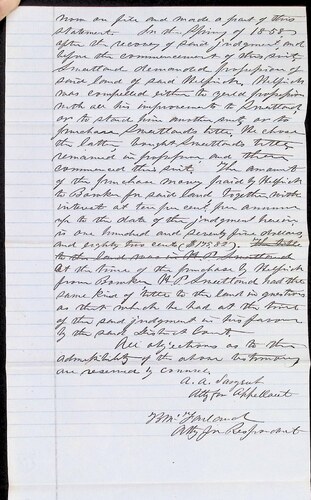 now on file and made a part of this
statement. In the Spring of 1858,
after the recovery of said judgment, and
before the commencement of this suit,
demanded possession of
said land of said Helfrick. Helfrick
was compelled either to yield possession
with all his improvements to
or to stand him another suit, or to
purchase title, He chose
the latter, bought title
remained in possession, and then
commenced this suit. The amount
of the purchase money paid by Helfrick
to Banker for said land together with
interest at ten per cent per annum
up to the date of the judgment herein
is one hundred and seventy five dollars
and eighty two cents ($175.82). The title
to the land was in H. P.
At the time of the purchase by Helfrick
from Banker H P had the
same kind of title to the land in question
as that which he had at the time
of the said judgment in his favor
by the said District Court.
All objections as to the
admissibility of the above testimony
are reserved by counsel
A. A. Sargent
Atty for Appellant
Atty for Respondent